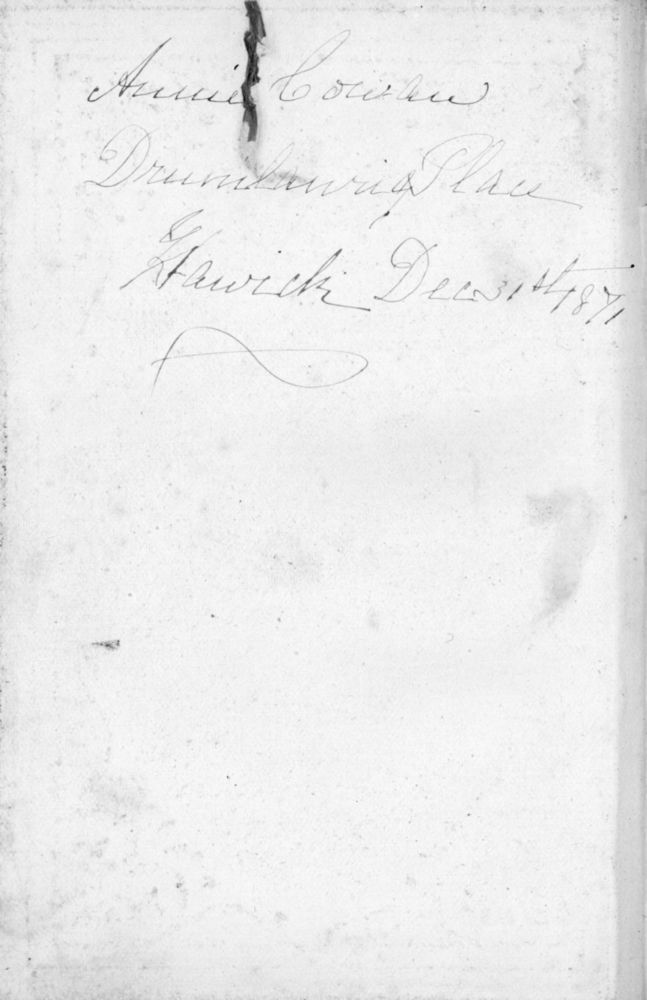 Annie Cowan
Drumlanrig Place
Hawick Dec 31st 1871